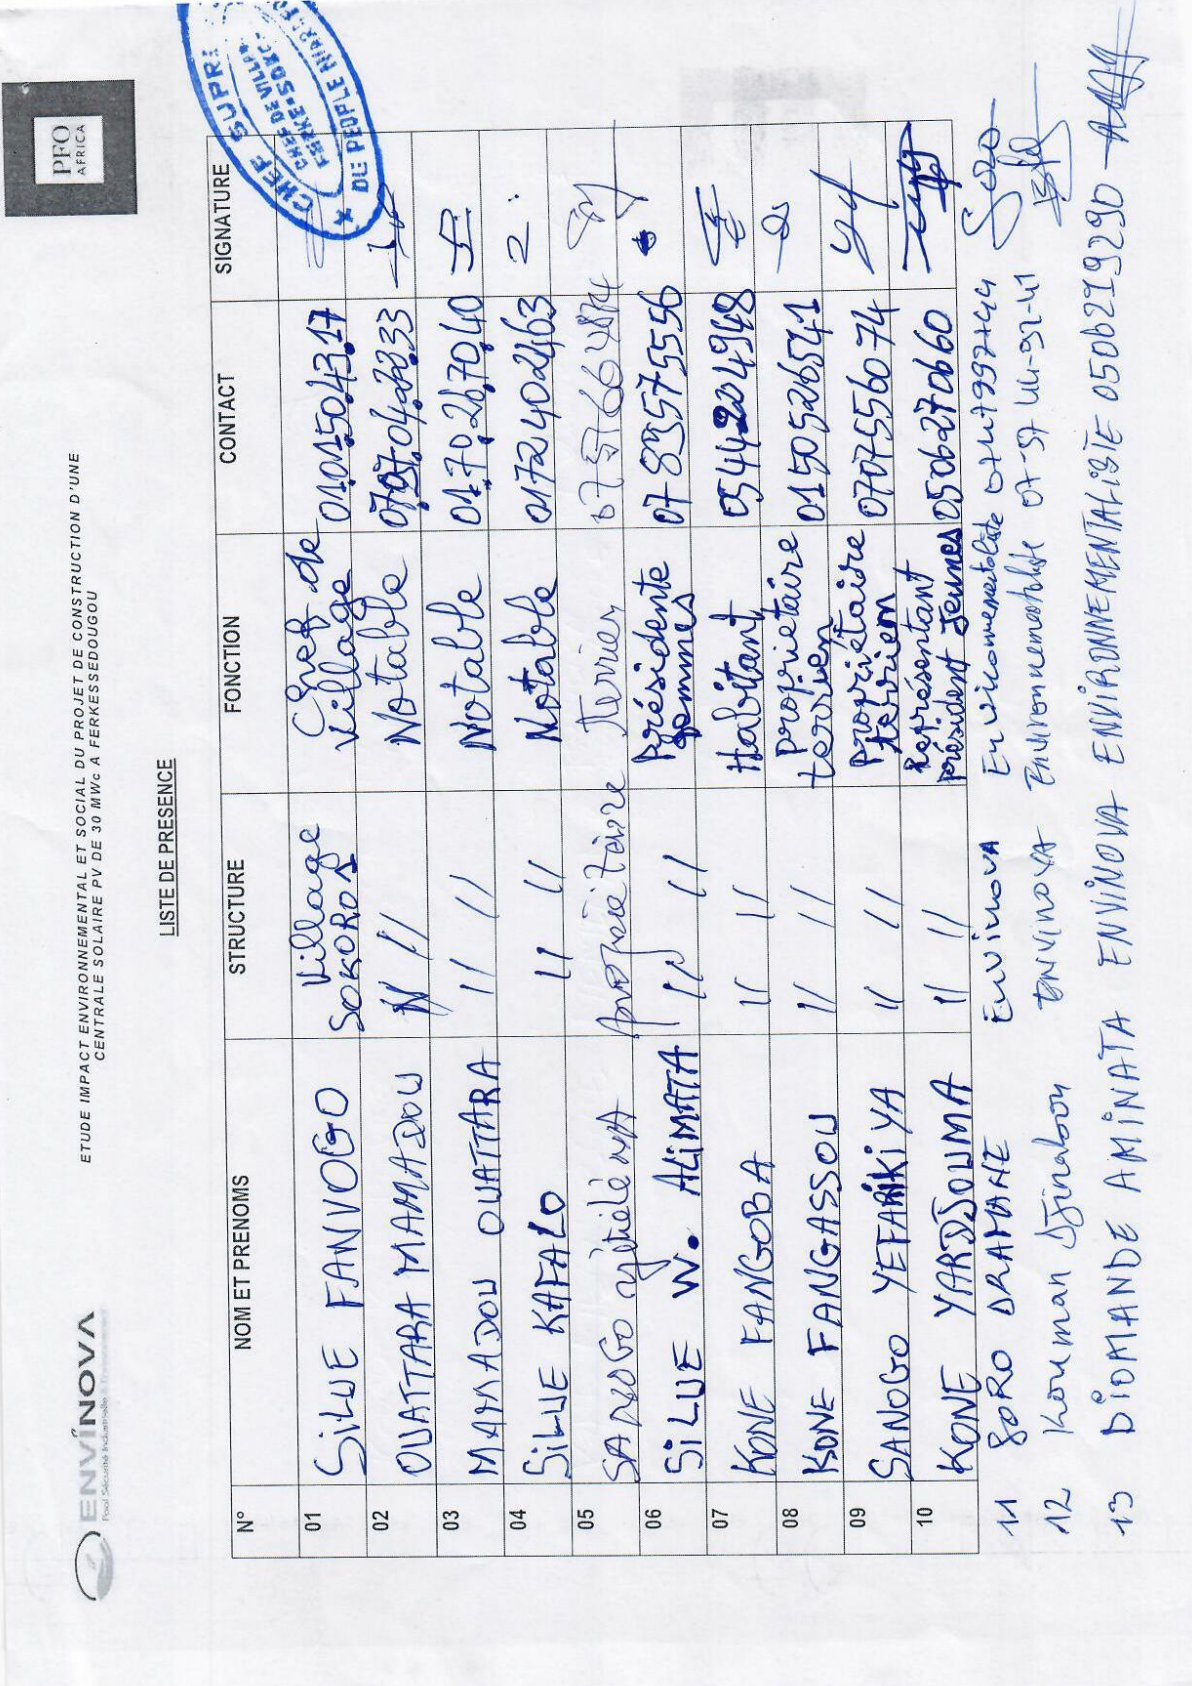 ENVINOVA
PFO
AFRICA
ETUDE IMPACT ENVIRONNEMENTAL ET SOCIAL DU PROJET DE CONSTRUCTION D'UNE
CENTRALE SOLAIRE PV DE 30 MWc A FERKESSEDOUGOU
LISTE DE PRESENCE
N° NOM ET PRENOMS STRUCTURE FONCTION CONTACT SIGNATURE
01 SILUE FANVOGO Village SOKORO 1 Chef de village 0101504317
02 OUATTARA MAMADOU // // Notable
03 MAMADOU OUATTARA // // Notable 0170267040
04 SILUE KAFALO // // Notable 0172402463
05 SANOGO propriétaire Terrien
06 SILUE W. ALIMATA // // présidente femmes 07 83575556
07 KONE FANGOBA // // Habitant 0544204948
08 KONE FANGASSOU // // propriétaire terrien 0150526541
09 SANOGO YEFARIKIYA // // propriétaire terrien 0707556074
10 KONE YARDJOUMA // // Représentant président Jeunes 0506270660
11 SORO DRAMANE Envinova Environnementaliste Soro
12 Kouman Envinova Environnementaliste
13 DIOMANDE AMINATA ENVINOVA ENVIRONNEMENTALISTE 0506219290
CHEF DE VILLAGE